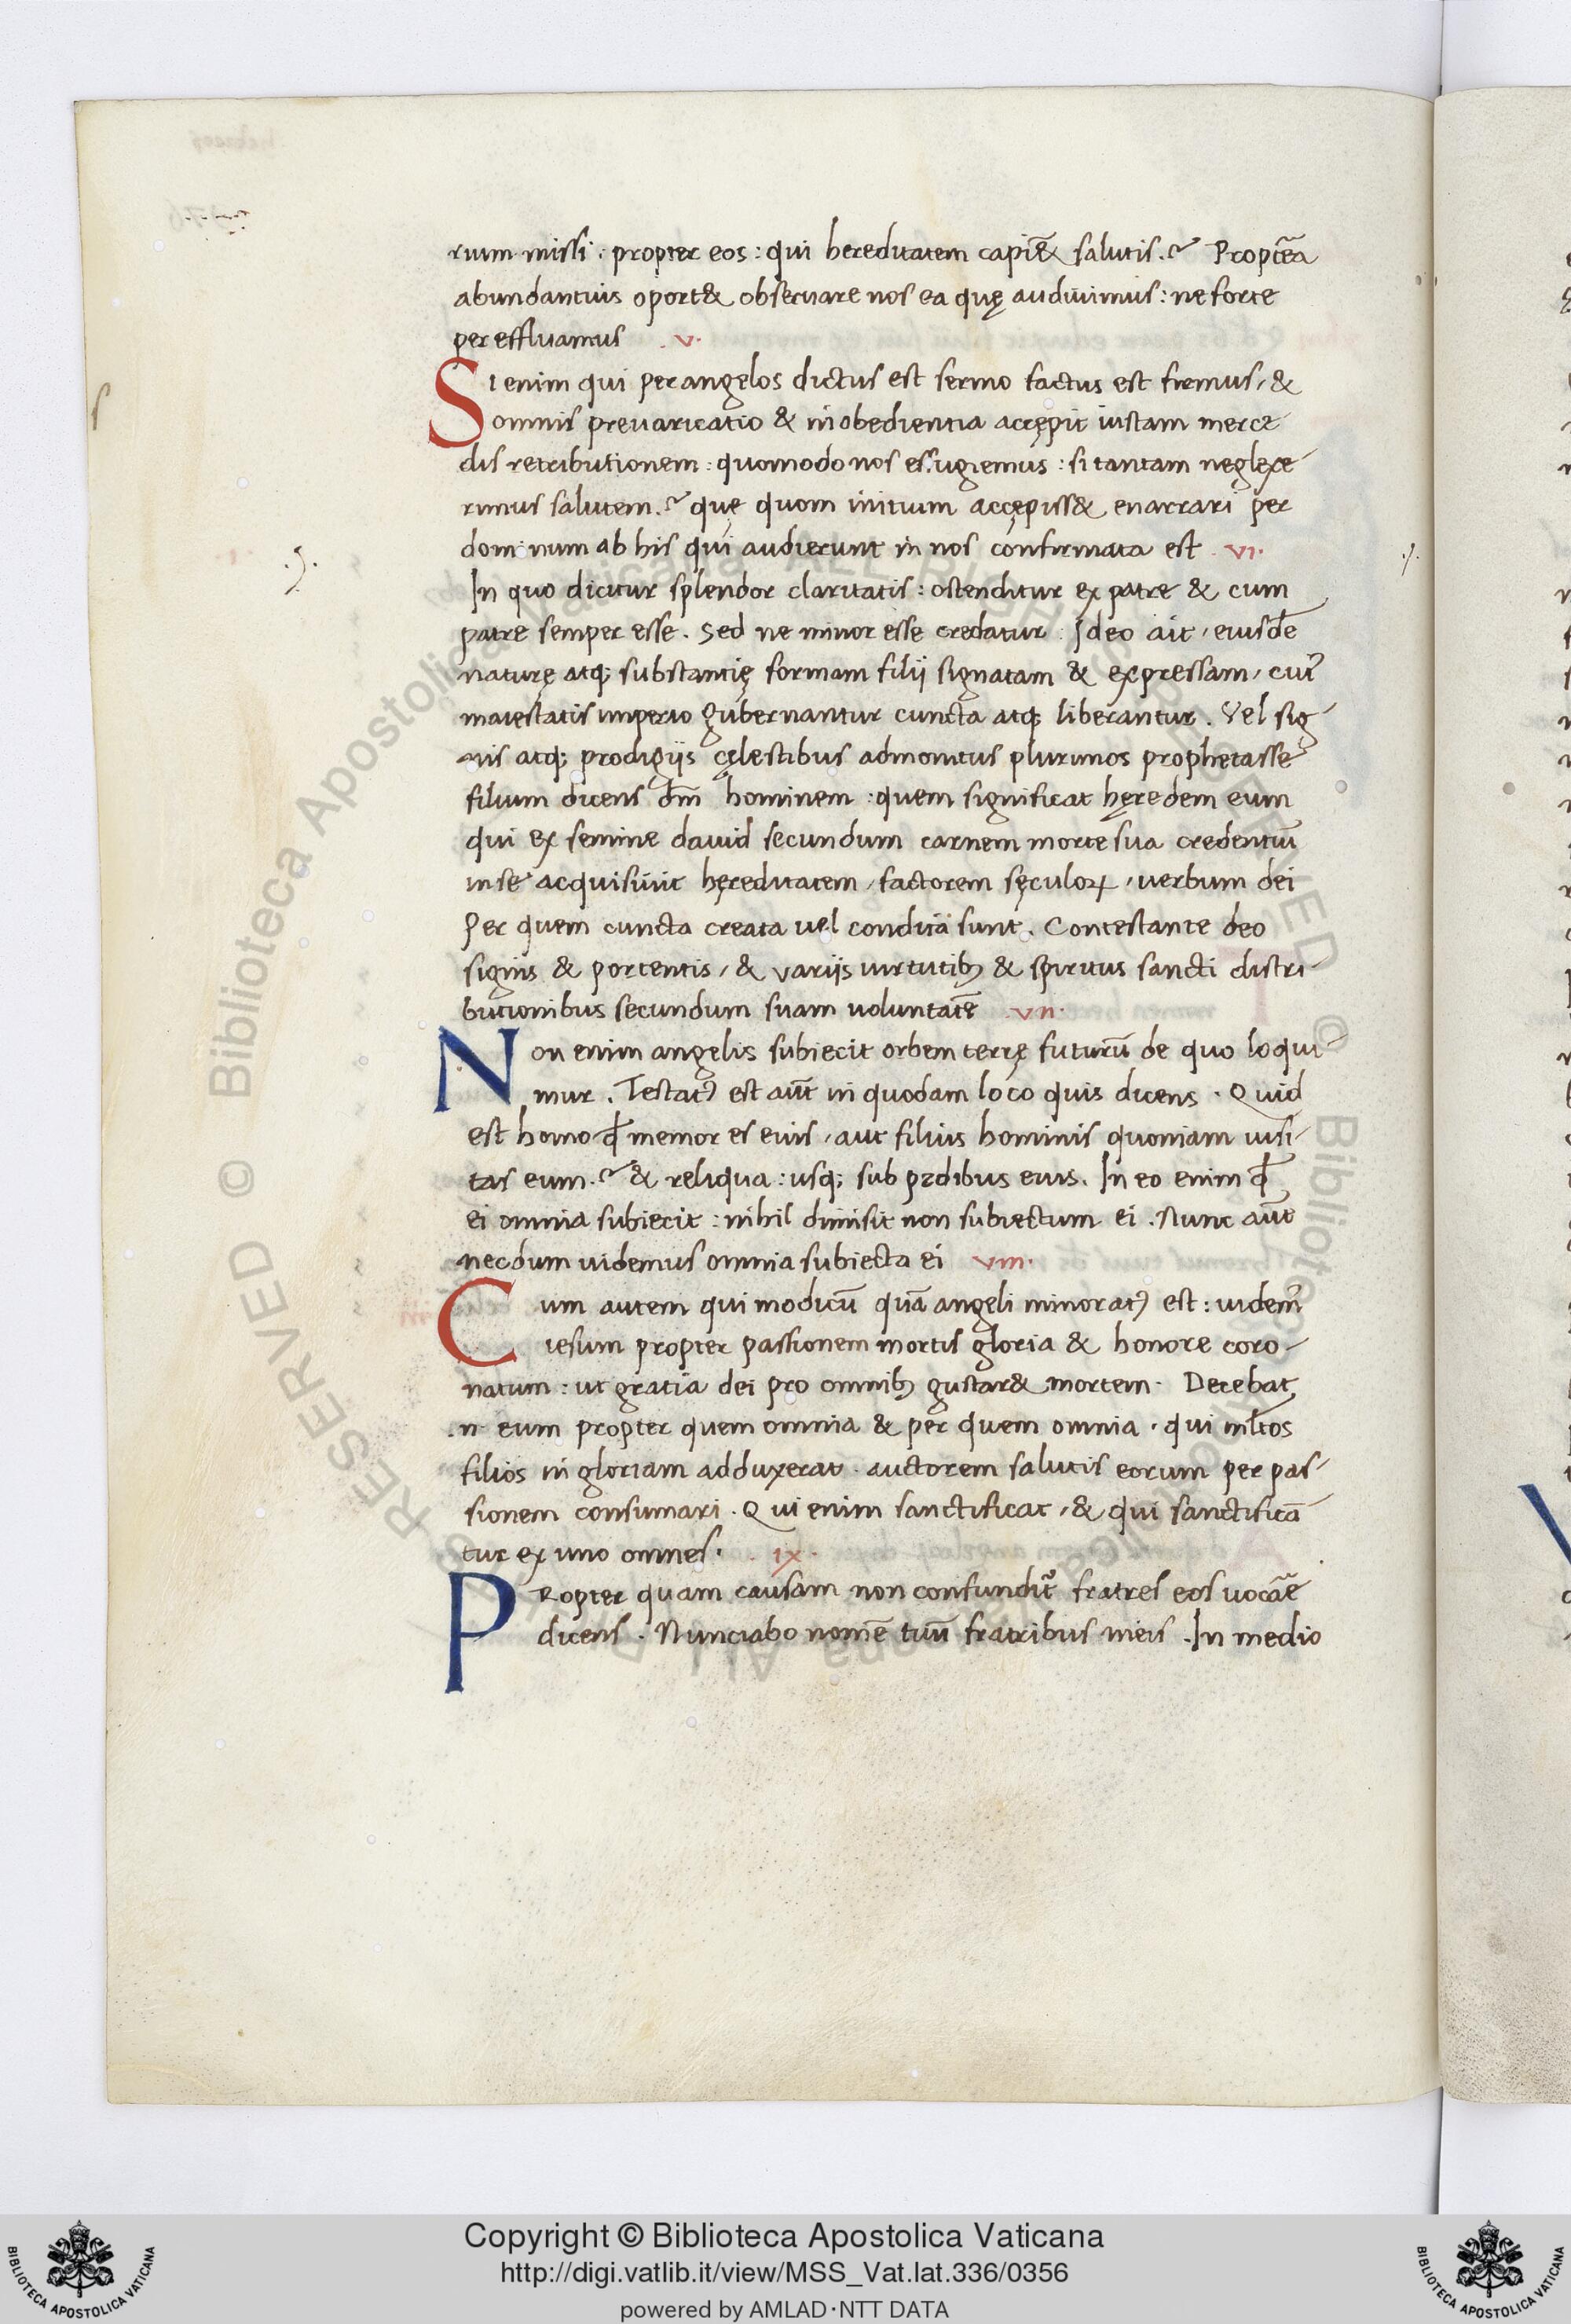 rium missi : propter eos : qui hereditatem capiẽ& salutis .? Proptẽa
abundantius oport& obseruare nos ea quę audiuimus : ne forte
per effluamus . v.
Si enim qui per angelos dictus est sermo factus est firmus , &
omnis preuaricatio & inobedientia accępit iustam merce
dis retributionem : quomodo nos effugiemus : si tantam neglexe-
rimus salutem .? quę quom initium accępiss& enarrari per
dominum ab his qui audierunt in nos confirmata est . vi.
In quo dicitur splendor claritatis : ostenditur ex patre & cum
patre semper esse . Sed ne minor esse credatur : Ideo ait , eiusdẽ
naturę atq; substantię formam filij signatam & expressam , cui᷒
maiestatis imperio gubernantur cuncta atq; liberantur . Vel sig-
nis atq; prodigijs cęlestibus admonitus plurimos prophetasse
filium dicens dm̄ hominem : quem significat hęredem eum
qui ex semine dauid secundum carnem morte sua credentiũ
in se acquisiuit hęreditatem , factorem sęculoꝝ , uerbum dei
Per quem cuncta creata uel condita sunt . Contestante deo
signis & portentis , & variis uirtutibꝫ & spiritus sancti distri-
butionibus secundum suam voluntatẽ . vii.
Non enim angelis subiecit orbem terrę futurũ de quo loqui-
mur . Testatꝰ est aūt in quodam loco quis dicens . Quid
est homo ꝙ memor es eius , aut filius hominis quoniam uisi-
tas eum .? & reliqua : usq; sub pedibus eius . In eo enim ꝙ
ei omnia subiecit : nihil dimisit non subiectum ei . Nunc aūt
necdum uidemus omnia subiecta ei viii.
Cum autem qui modicũ quã angeli minoratꝰ est : uidem᷒
iesum propter passionem mortis gloria & honore coro-
natum : ut gratia dei pro omnibꝫ gustar& mortem . Decebat
.n. eum propter quem omnia & per quem omnia . qui ml̄tos
filios in gloriam adduxerat . auctorem salutis eorum per pas-
sionem consumari . Qui enim sanctificat , & qui sanctificã
tur ex uno omnes . . ix.
Propter quam causam non confundit᷑ fratres eos uocãe
dicens . Nunciabo nomẽ tuũ fratribus meis . In medio
Copyright © Biblioteca Apostolica Vaticana
http://digi.vatlib.it/view/MSS_Vat.lat.336/0356
powered by AMLAD·NTT DATA
BIBLIOTECA APOSTOLICA VATICANA
BIBLIOTECA APOSTOLICA VATICANA